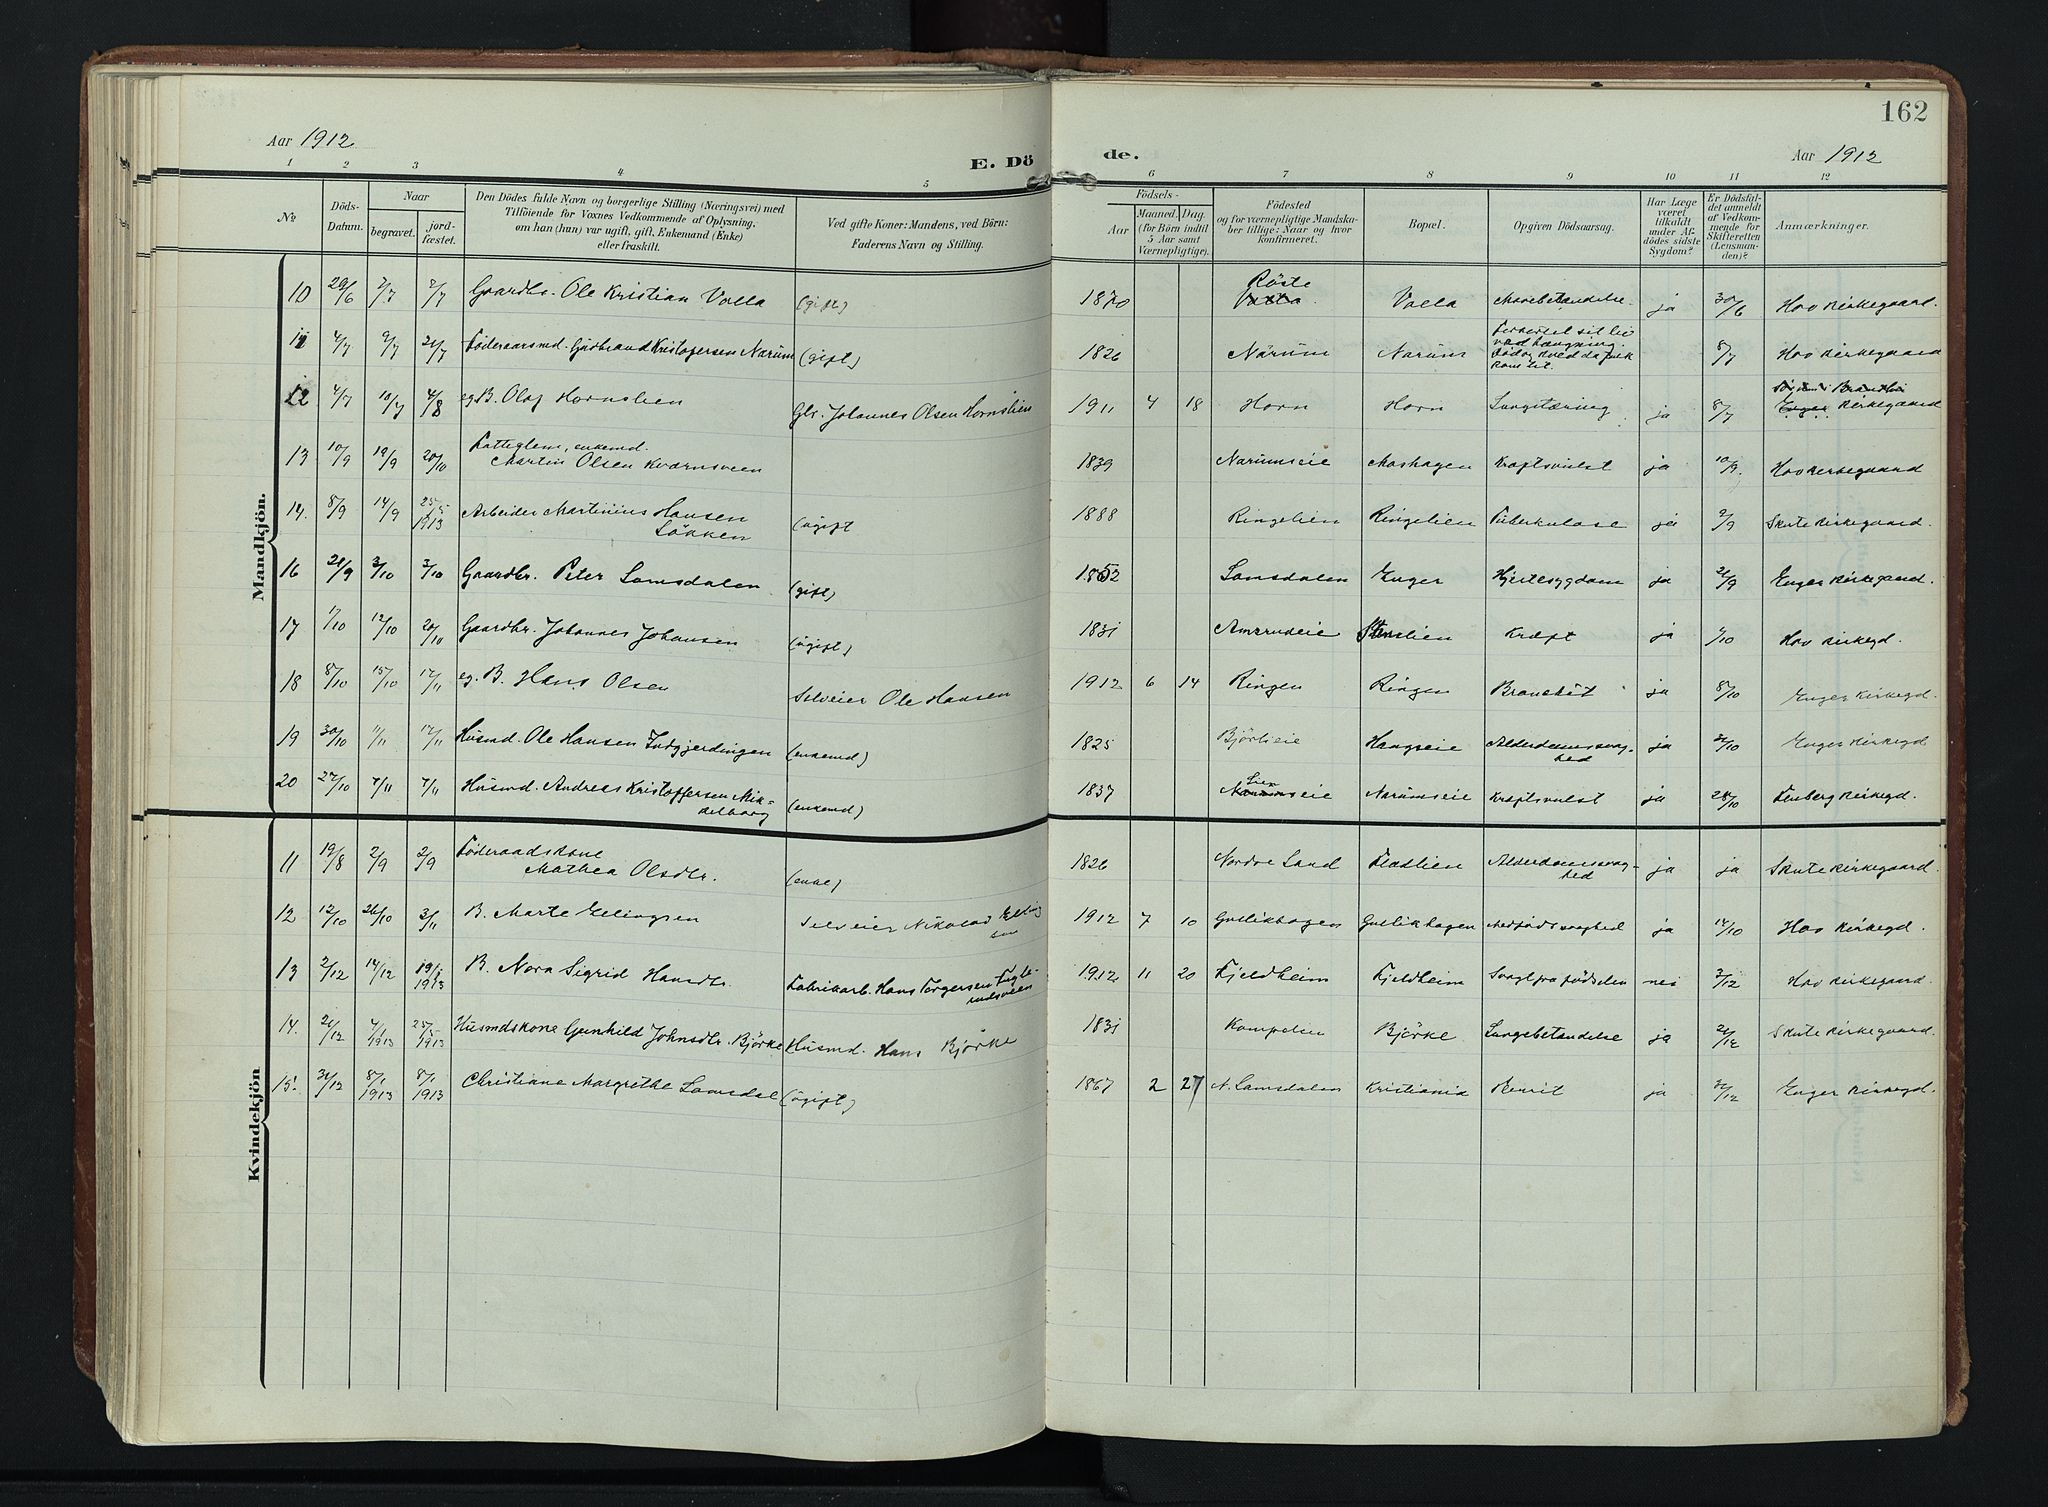 162
Aar 1912
E. Döde.
Aar 1912
1 2 3 4 5 6 7 8 9 10 11 12
№
Döds-Datum.
Naar
begravet.
jord-fæstet.
Den Dödes fulde Navn og borgerlige Stilling (Næringsvei) med
Tilföiende for Voxnes Vedkommende af Oplysning,
om han (hun) var ugift, gift, Enkemand (Enke)
eller fraskilt.
Ved gifte Koner: Mandens, ved Börn:
Faderens Navn og Stilling.
Födsels-
Aar
Maaned. Dag.
(for Börn indtil
5 Aar samt
Værnepligtige).
Födested
og for værnepligtige Mandska-
ber tillige: Naar og hvor
konfirmeret.
Bopæl.
Opgiven Dödsaarsag.
Har Læge
været
tilkaldt
under Af-
dödes sidste
Sygdom?
Er Dödsfal-
det anmeldt
af Vedkom-
mende for
Skifteretten
(Lensman-
den)?
Anmærkninger.
Mandkjön.
10 29/6 2/7 2/7 Gaardbr. Ole Kristian Volla (gift) 1870 Röste Volla Mavebetændelse. ja 30/6 Hov kirkegaard.
11 4/7 9/7 21/7 Föderaarsmd. Gudbrand Kristofersen Narum (gift) 1826 Narum Narum 8/7 Hov kirkegaard
12 4/7 10/7 4/8 eg. B. Olaf Hornslien Gbr. Johannes Olsen Hornslien 1911 4 18 Horn Horn Lungetæring ja 8/7 kirkegaard
13 10/9 19/9 20/10 Fattiglem, enkemd. Martin Olsen Kværnsveen 1839 Narumseie Moshagen Kræftsvulst ja 10/9. Hov kirkegaard
14. 8/9 14/9 25/5 1913 Arbeider Martinius Hansen Løkken (ugift 1888 Ringelien Ringelien Tuberkulose ja 9/9 Skute kirkegaard.
16 21/9 3/10 3/10 Gaardbr. Peter Lomsdalen (gift) 1852 Lomsdalen Enger Hjertesygdom ja 21/9 Enger kirkegaard.
17 1/10 12/10 20/10 Gaardbr. Johannes Johansen (ugift) 1831 Amsrudeie Stenslien Kræft ja Hov kirkegd.
18 8/10 15/10 17/11 eg. B. Hans Olsen Selveier Ole Hansen 1912 6 14 Ringen Ringen Bronchit ja 8/10 Enger kirkegd.
19 30/10 1/11 17/11 Husmd. Ole Hansen Indgjerdingen (enkemd) 1825 Björlieie Haugseie Alderdomssvag-hed ja 31/10 Enger kirkegd
20 27/10 7/11 7/11 Husmd. Andreas Kristoffersen Mik-kelborg (enkemd) 1837 Narumseie Kræftsvulst ja 28/10 Fenberg kirkegd.
Kvindekjön
11 19/8 2/9 2/9 Föderaadskone Mathea Olsdtr. (enke) 1826 Nordre Land Fladlien Alderdomssvag-hed ja ja Skute kirkegaard.
12 12/10 26/10 3/11 B. Marte Elingsen Selveier Nikolai Eling sen 1912 7 10 Gullikhagen Gullikhagen Medfødt svaghed ja 14/10 Hov kirkegd.
13 2/12 14/12 19/1 1913 B. Nora Sigrid Hansdtr. Fabrikarb. Hans Torgersen Fugle-rudsveen 1912 11 20 Fjeldheim Fjeldheim Svagt fra födselen nei 3/12 Hov kirkegaard.
14. 21/12 7/1 1913 25/5 1913 Husmdskone Gunhild Johnsdtr. Björke Husmd. Hans Björke 1831 Kompelien Björke Lungebetændelse ja 21/12 Skute kirkegaard.
15. 31/12 8/1 1913 8/1 1913 Christiane Margrethe Lomsdal (ugift) 1867 2 27 N. Lomsdalen Kristiania Nevrit ja 31/12 Enger kirkegd.